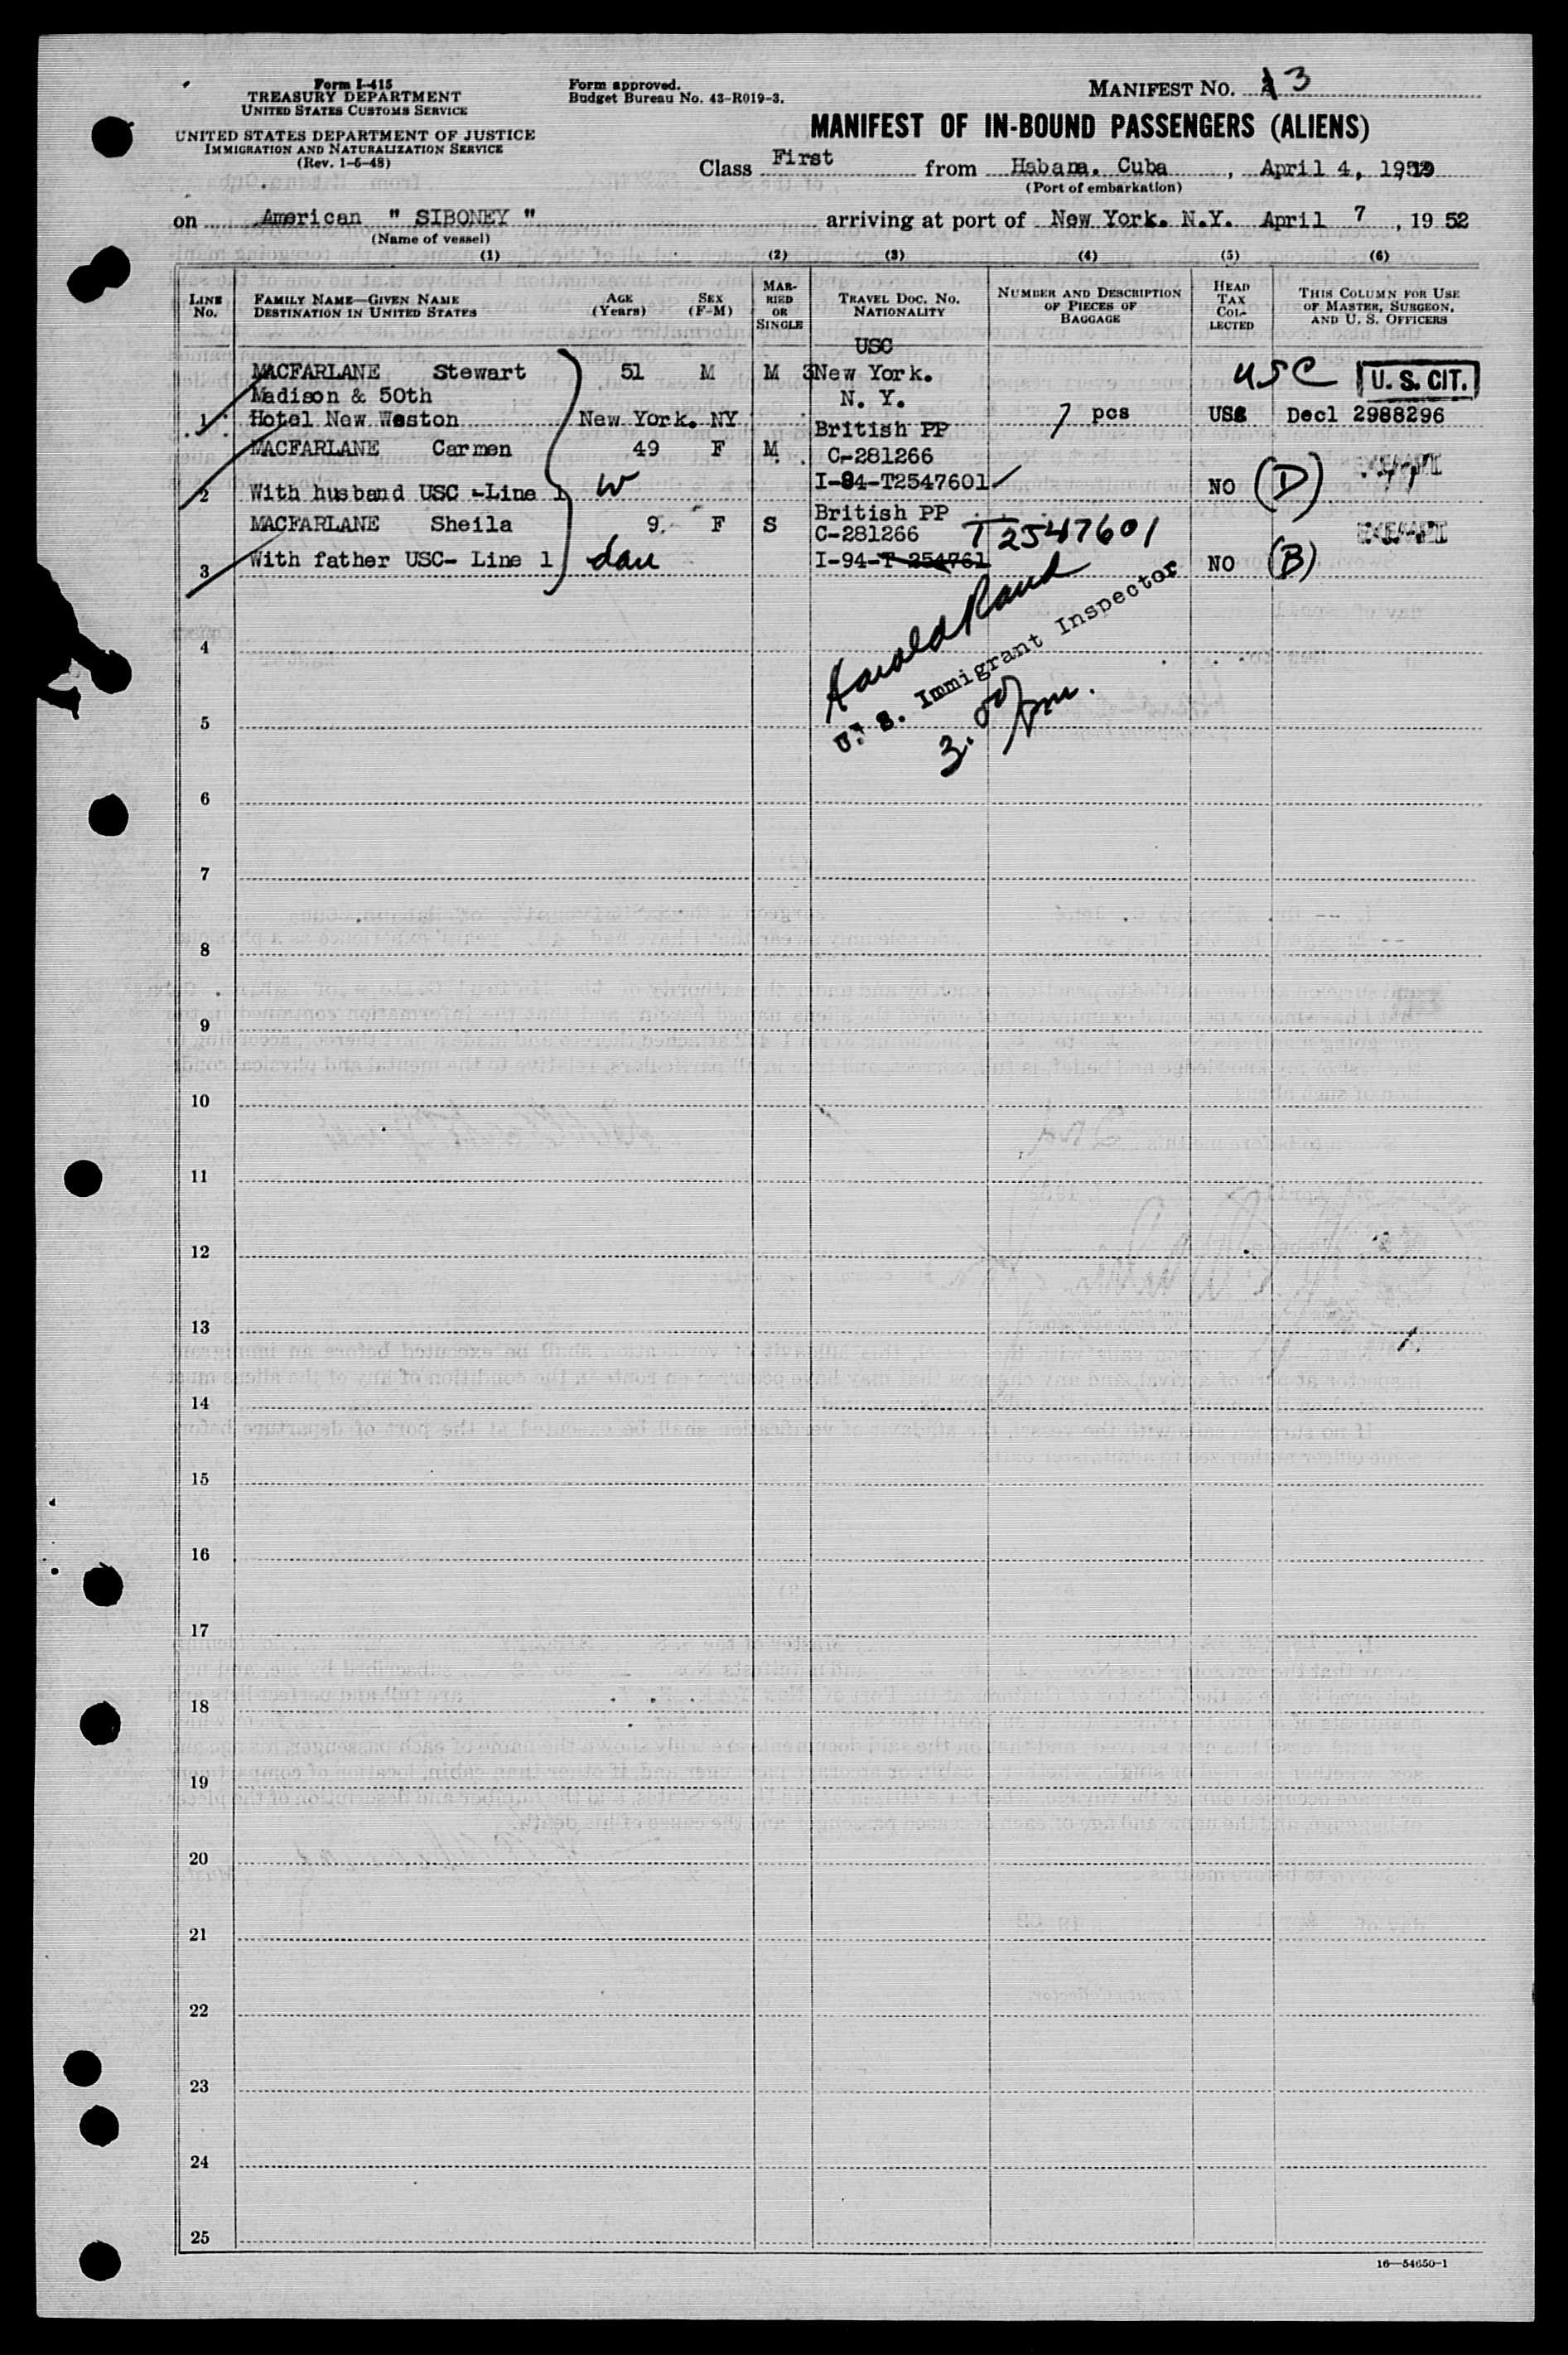 Form I-415
TREASURY DEPARTMENT
UNITED STATES CUSTOMS SERVICE
UNITED STATES DEPARTMENT OF JUSTICE
IMMIGRATION AND NATURALIZATION SERVICE
(Rev. 1-6-48)
Form approved.
Budget Bureau No. 43-R019-3.
MANIFEST NO. 3
MANIFEST OF IN-BOUND PASSENGERS (ALIENS)
Class First from Habana, Cuba, April 4, 19
(Port of embarkation)
on American " SIBONEY " arriving at port of New York. N.Y. April 7, 19 52
(Name of vessel)
(1) (2) (3) (4) (5) (6)
LINE No.
FAMILY NAME—GIVEN NAME
DESTINATION IN UNITED STATES
AGE (Years)
SEX (F-M)
MAR-RIED OR SINGLE
TRAVEL DOC. NO. NATIONALITY
NUMBER AND DESCRIPTION OF PIECES OF BAGGAGE
HEAD TAX COL-LECTED
THIS COLUMN FOR USE OF MASTER, SURGEON, AND U. S. OFFICERS
USC
MACFARLANE Stewart 51 M M New York. USC U. S. CIT.
Madison & 50th N. Y.
1 Hotel New Weston New York. NY 7 pcs USC Decl 2988296
British PP
MACFARLANE Carmen 49 F M C-281266
2 With husband USC -Line 1 W I-94-T2547601 ✓ NO (D)
MACFARLANE Sheila 9 F S British PP
C-281266 T2547601
3 With father USC- Line 1 dau I-94-T 254761 NO (B)
Harold Rand
U. S. Immigrant Inspector
3.00 pm.
4
5
6
7
8
9
10
11
12
13
14
15
16
17
18
19
20
21
22
23
24
25
16—54650-1